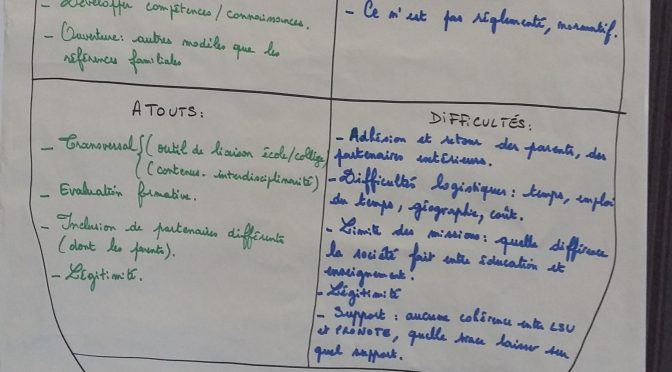 - Développer compétences / connaissances.
- Ouverture: autres modèles que les
références familiales
- Ce n'est pas réglementé, normatif.
ATOUTS:
- Transversal { ( outil de liaison école/collège
( contenus. interdisciplinarité )
- Evaluation formative.
- Inclusion de partenaires différents
(dont les parents).
- Légitimité.
DIFFICULTÉS:
- Adhésion et retour des parents, des
partenaires extérieurs.
- Difficultés logistiques: temps, emploi
du temps, géographie, coût.
- Limite des missions: quelle différence
la société fait entre éducation et
enseignement.
- Légitimité
- Support: aucune cohérence entre LSU
et PRONOTE, quelle trace laisser sur
quel support.